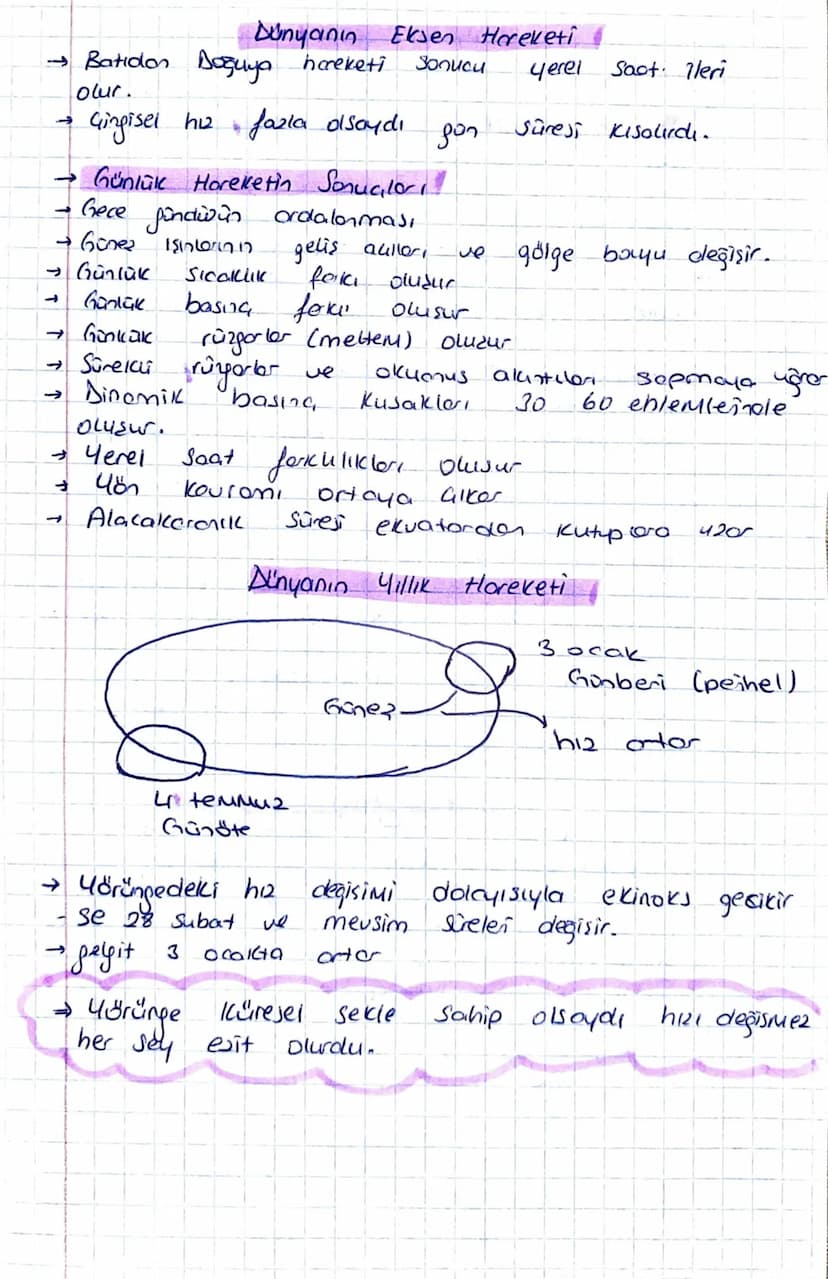 Dünyanın Eksen Hareketi
→ Batıdan Doğuya hareketi sonucu yerel saat ileri
olur.
→ Çizgisel hız fazla olsaydı gün süresi kısalırdı.
→ Günlük Hareketin Sonuçları!
→ Gece gündüzün ardalanması
→ Güneş ışınlarının geliş açıları ve gölge boyu değişir.
→ Günlük sıcaklık farkı oluşur
→ Günlük basınç farkı oluşur
→ Günlük rüzgarlar (meltem) oluşur
→ Sürekli rüyarlar ve okyanus akıntıları sapmaya uğrar
→ Dinamik basınç kuşakları 30 60 enlemleinde
oluşur.
→ Yerel saat farklılıkları oluşur
→ Yön kavramı ortaya çıkar
→ Alacakaranlık süresi ekvatordan kutuplara uzar
Dünyanın Yıllık Hareketi
3 ocak
Günberi (peihel)
Güneş
hız artar
4 temmuz
Günöte
→ Yörüngedeki hız değişimi dolayısıyla ekinoks gecikir
- se 28 şubat ve mevsim süreleri değişir.
→ gelgit 3 ocakta artar
→ Yörünge küresel şekle sahip olsaydı hızı değişmez
her şey eşit olurdu.